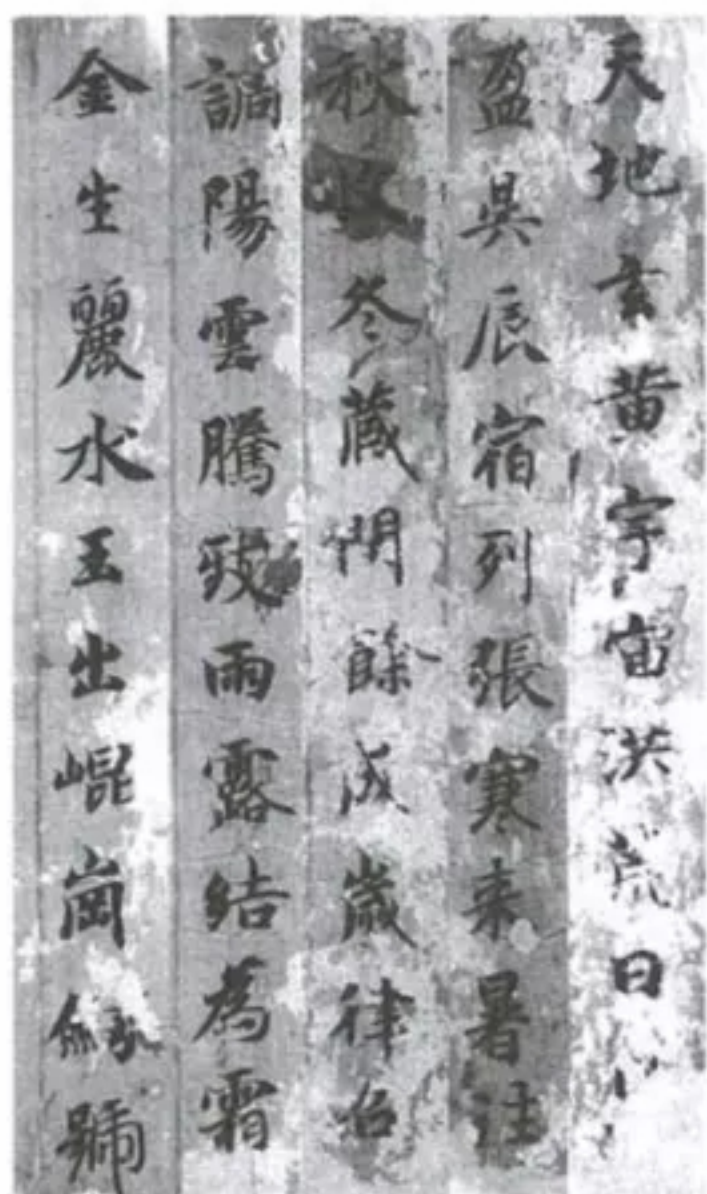 天地玄黄宇宙洪荒日
盈昃辰宿列張寒来暑往
秋収冬藏閏餘成歲律呂
調陽雲騰致雨露結為霜
金生麗水玉出崐崗劔號